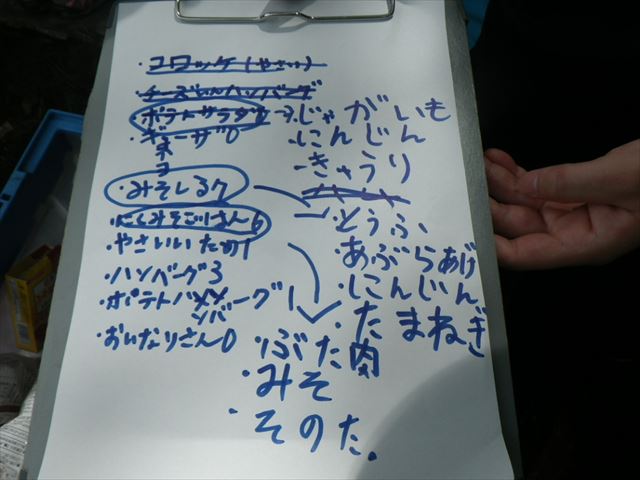 ・コロッケ(やさい)
・チーズinハンバーグ
ポテトサラダ
・ギョーザ0
ネ
ヨ
・みそしる7
・やさいいため1
・ハンバーグ3
・ポテト
バーグ1
・おいなりさん0
じゃがいも
・にんじん
・きゅうり
・とうふ
・あぶらあげ
・にんじん
・たまねぎ
・ぶた肉
・みそ
・そのた。